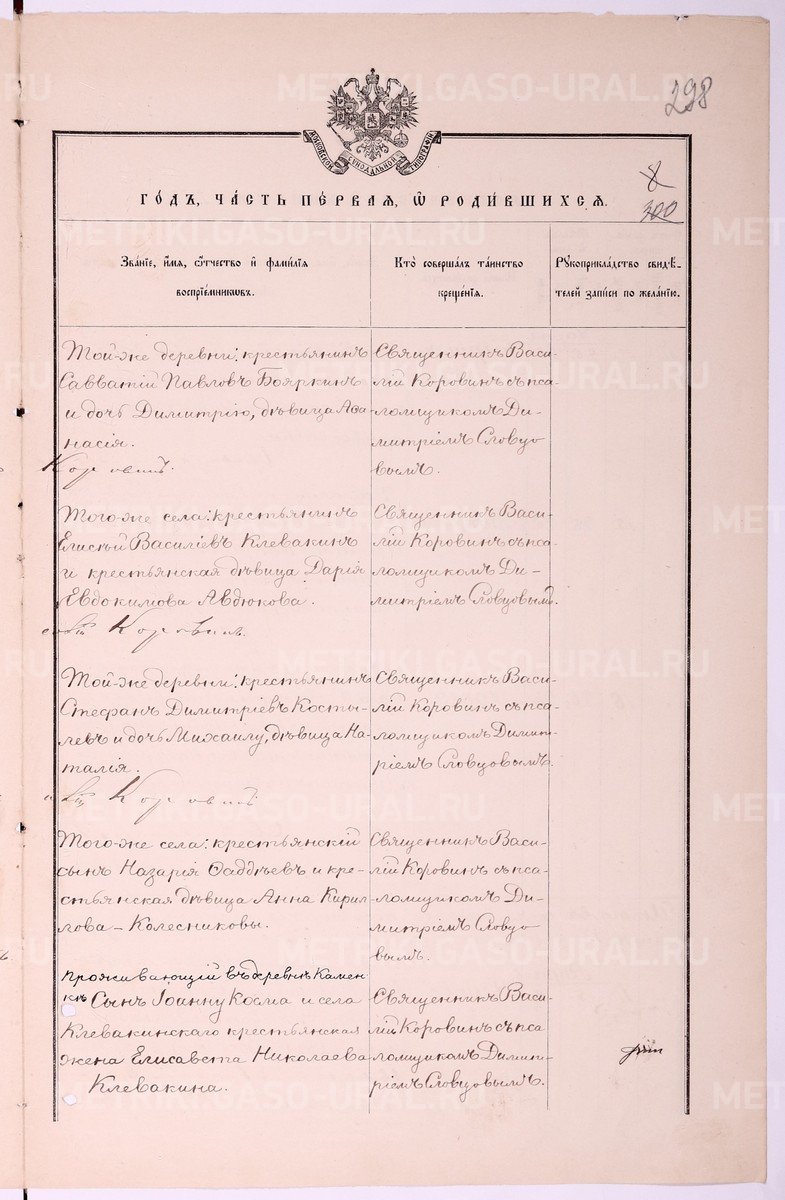 298
МОСКОВСКОЙ СѴНОДАЛЬНОЙ ТИПОГРАФІИ
8
300
ГО́ДЪ, ЧА́СТЬ ПЕ́РВАЯ, Ѿ РОДИ́ВШИХСЯ.
Зва́ніе, и́мя, ѻ҆́тчество и҆ фами́лія
воспріе́мниковъ.
Кто̀ соверша́лъ та́инство
креще́нія.
Рꙋкоприкла́дство свидѣ́-
телей за́писи по жела́нію.
Той-же деревни: крестьянинъ
Савватій Павловъ Бояркинъ
и дочь Димитрію, дѣвица Аѳа-
насія.
Коровинъ.
Священникъ Васи-
лій Коровинъ съ пса-
ломщикомъ Ди-
митріемъ Словцо
вымъ.
Того-же села: крестьянинъ
Елисѣй Василіевъ Клевакинъ
и крестьянская дѣвица Дарія
Евдокимова Авдюкова.
Коровинъ.
Священникъ Васи-
лій Коровинъ съ пса-
ломщикомъ Ди-
митріемъ Словцовымъ.
Той-же деревни: крестьянинъ
Стефанъ Димитріевъ Косты-
левъ и дочь Михаилу, дѣвица На-
талія.
Коровинъ
Священникъ Васи-
лій Коровинъ съ пса-
ломщикомъ Димит-
ріемъ Словцовымъ.
Того-же села: крестьянскій
сынъ Назарія Ѳаддѣевъ и кре-
стьянская дѣвица Анна Кирил
лова - Колесниковы.
Священникъ Васи-
лій Коровинъ съ пса-
ломщикомъ Ди-
митріемъ Словцо
вымъ.
Проживающій въ деревнѣ Камен
кѣ Сынъ Іоанну Косма и села
Клевакинскаго крестьянская
жена Елисавета Николаева
Клевакина.
Священникъ Васи-
лій Коровинъ съ пса
ломщикомъ Димит-
ріемъ Словцовымъ.
METRIKI.GASO-URAL.RU